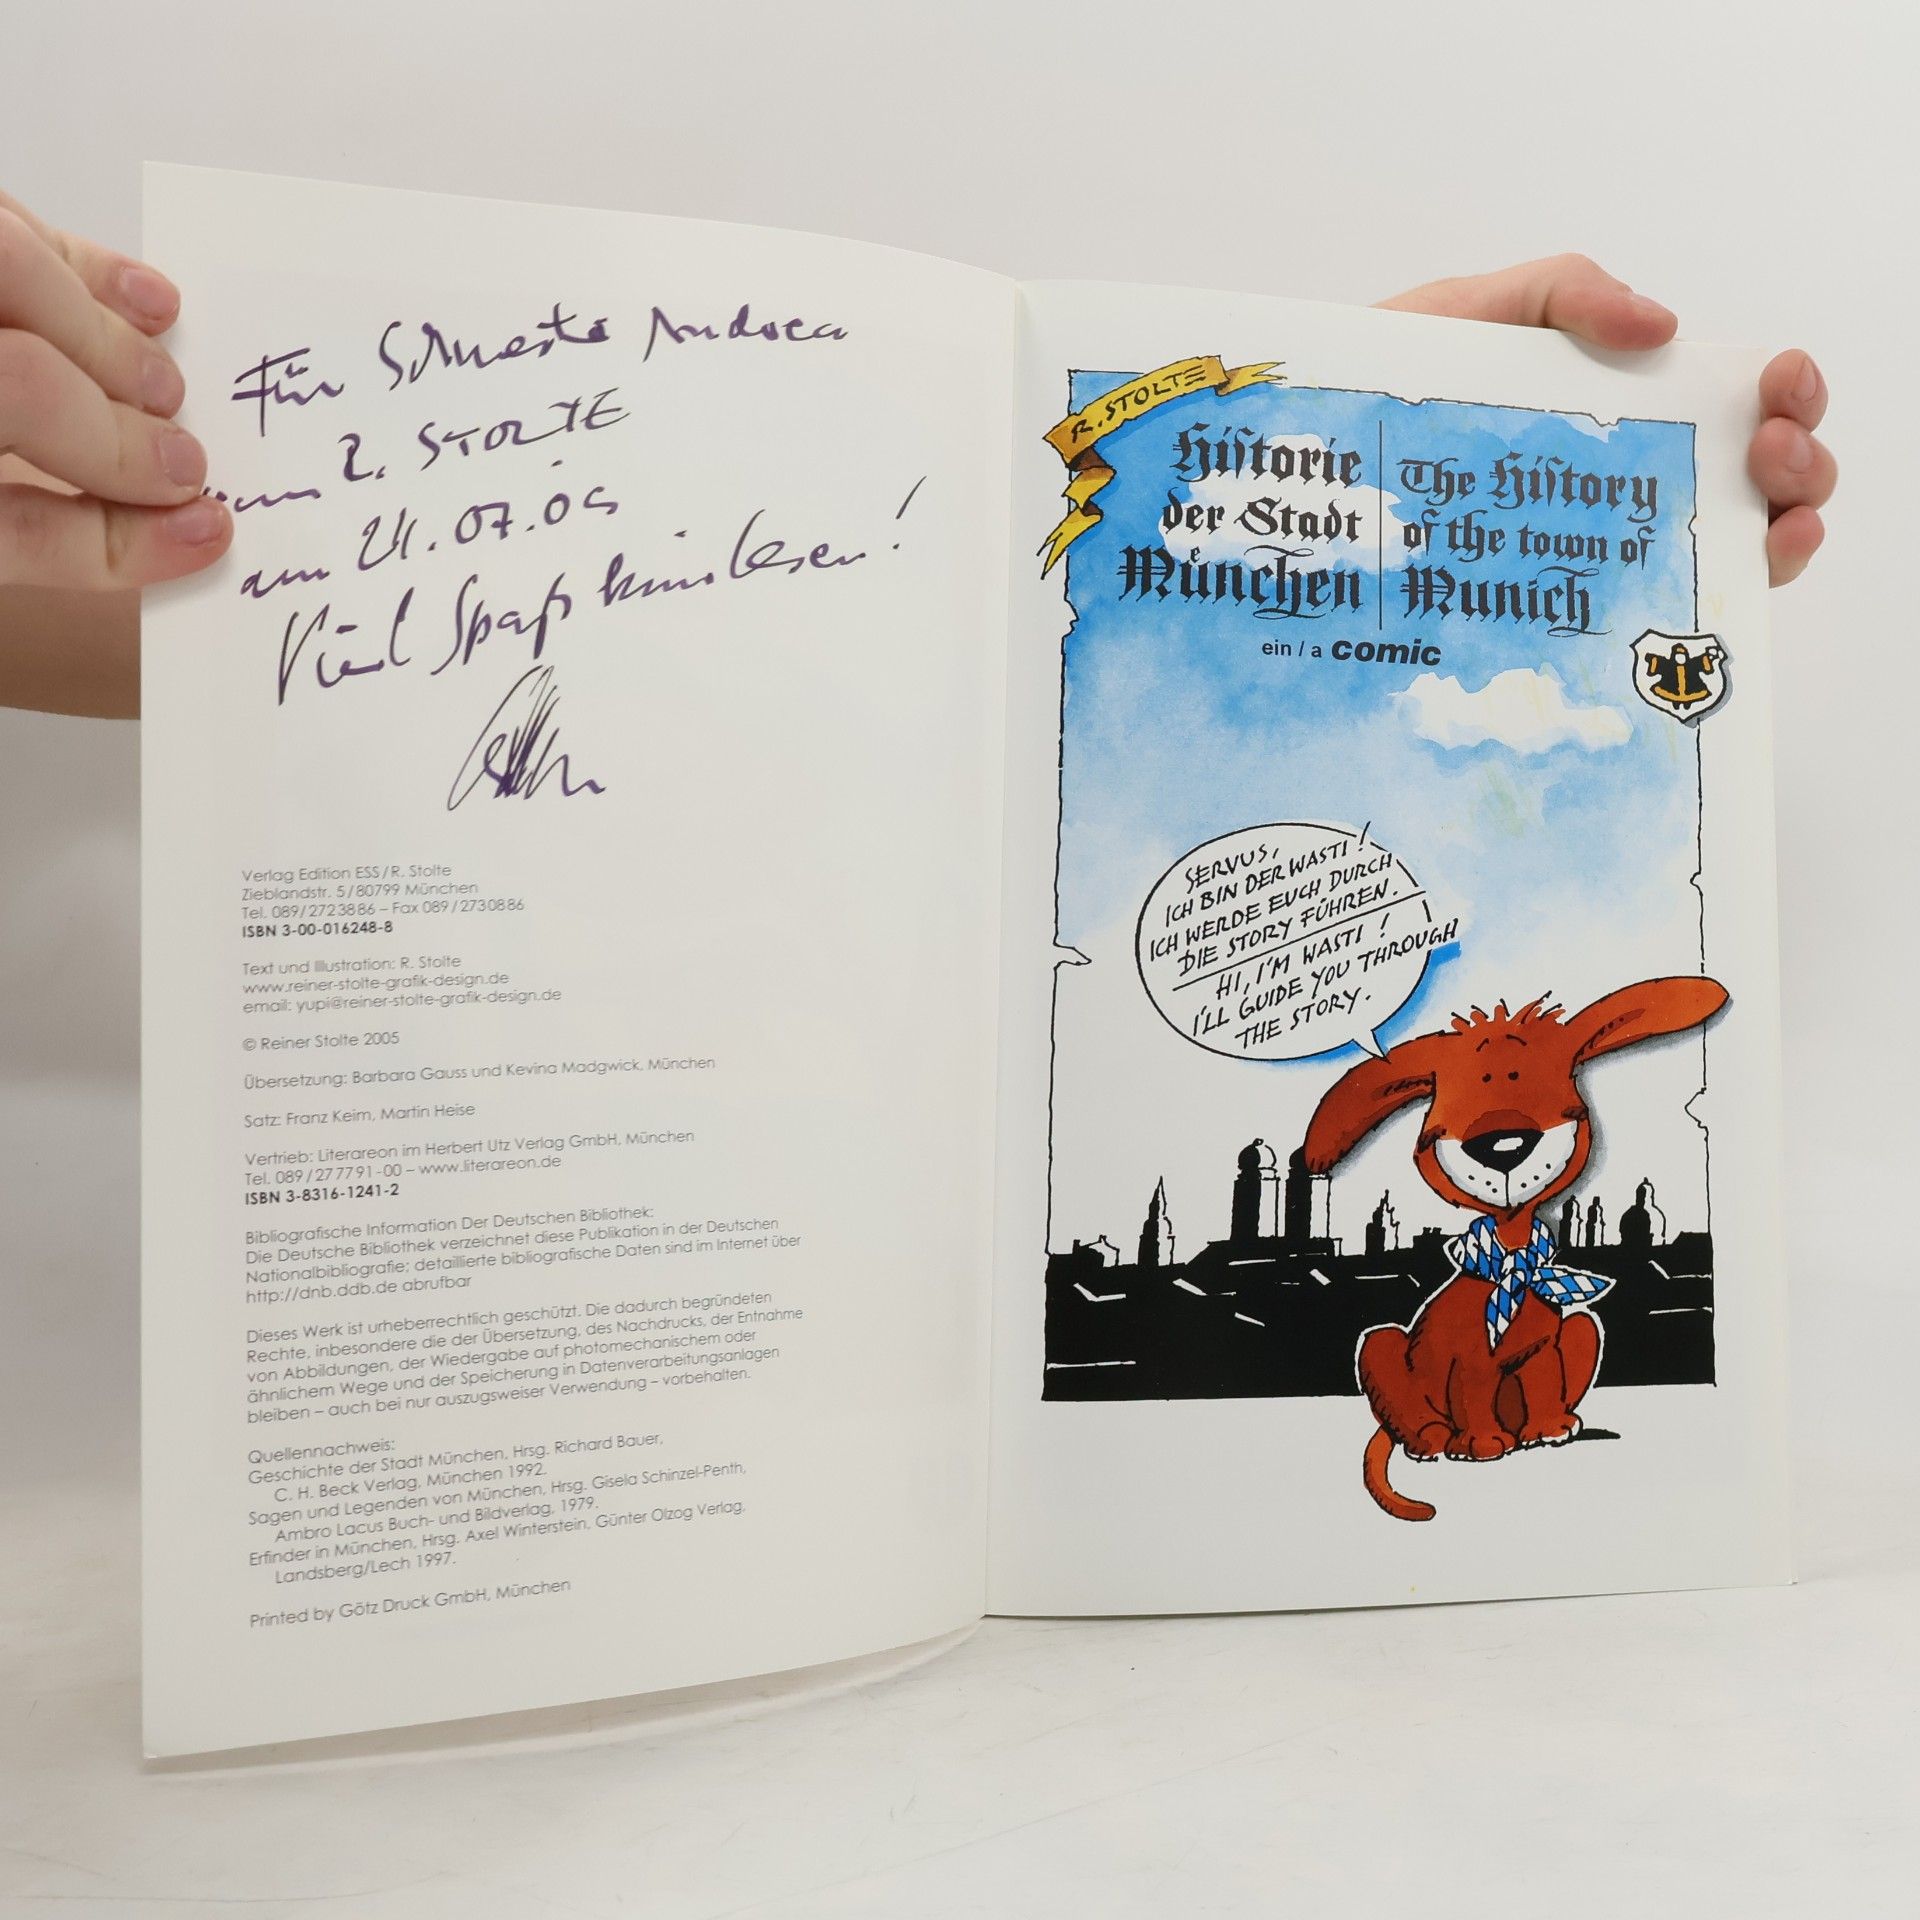 Für Schwester Andrea
R. STOLTE
am 21.07.05
Viel Spaß beim Lesen!
Verlag Edition ESS / R. Stolte
Zieblandstr. 5 / 80799 München
Tel. 089 / 2723886 – Fax 089 / 2730886
ISBN 3-00-016248-8
Text und Illustration: R. Stolte
www.reiner-stolte-grafik-design.de
email: yupi@reiner-stolte-grafik-design.de
© Reiner Stolte 2005
Übersetzung: Barbara Gauss und Kevina Madgwick, München
Satz: Franz Keim, Martin Heise
Vertrieb: Literareon im Herbert Utz Verlag GmbH, München
Tel. 089 / 277791-00 – www.literareon.de
ISBN 3-8316-1241-2
Bibliografische Information Der Deutschen Bibliothek:
Die Deutsche Bibliothek verzeichnet diese Publikation in der Deutschen
Nationalbibliografie; detaillierte bibliografische Daten sind im Internet über
http://dnb.ddb.de abrufbar
Dieses Werk ist urheberrechtlich geschützt. Die dadurch begründeten
Rechte, insbesondere die der Übersetzung, des Nachdrucks, der Entnahme
von Abbildungen, der Wiedergabe auf photomechanischem oder
ähnlichem Wege und der Speicherung in Datenverarbeitungsanlagen
bleiben – auch bei nur auszugsweiser Verwendung – vorbehalten.
Quellennachweis:
Geschichte der Stadt München, Hrsg. Richard Bauer,
C. H. Beck Verlag, München 1992.
Sagen und Legenden von München, Hrsg. Gisela Schinzel-Penth,
Ambro Lacus Buch- und Bildverlag, 1979.
Erfinder in München, Hrsg. Axel Winterstein, Günter Olzog Verlag,
Landsberg/Lech 1997.
Printed by Götz Druck GmbH, München
R. STOLTE
Hiſtorie
der Stadt
Muͤnchen
The Hiſtory
of the town of
Munich
ein / a comic
SERVUS,
ICH BIN DER WASTI!
ICH WERDE EUCH DURCH
DIE STORY FÜHREN.
HI, I'M WASTI!
I'LL GUIDE YOU THROUGH
THE STORY.